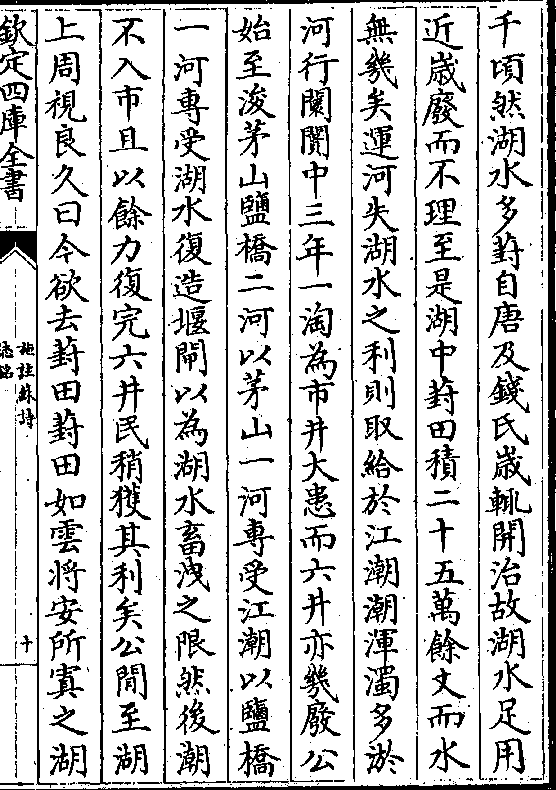 千頃然湖水多葑自唐及錢氏歳輒開治故湖水足用
近歳廢而不理至是湖中葑田積二十五萬餘丈而水
無幾矣運河失湖水之利則取給於江潮潮渾濁多淤
河行闤闠中三年一淘為市井大患而六井亦幾廢公
始至浚茅山鹽橋二河以茅山一河專受江潮以鹽橋
一河專受湖水復造堰閘以為湖水畜洩之限然後潮
不入市且以餘力復完六井民稍獲其利矣公閒至湖
上周視良久曰今欲去葑田葑田如雲將安所寘之湖
欽定四庫全書
施註蘇詩
誌銘
十